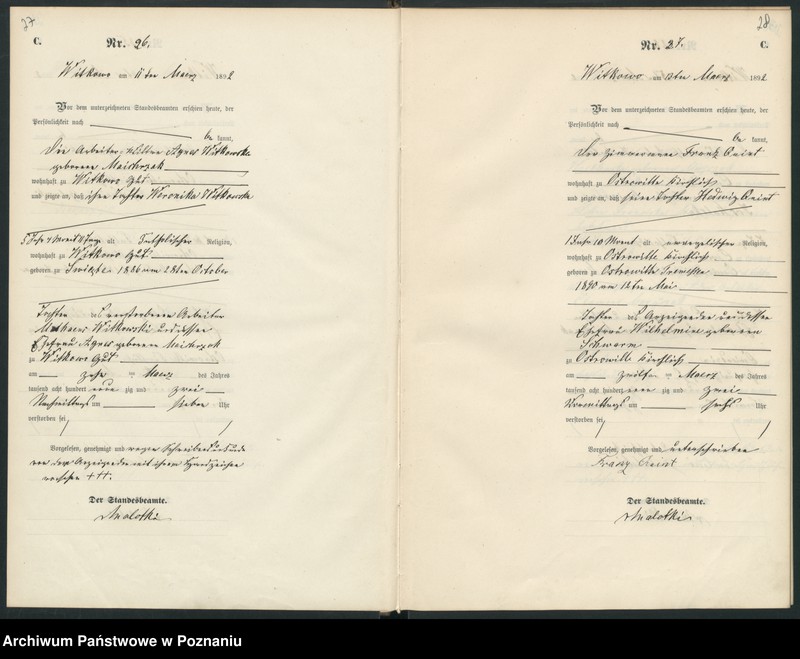 27
C.
Nr. 26.
Witkowo am 11ten Maerz 1892
Vor dem unterzeichneten Standesbeamten erschien heute, der
Persönlichkeit nach
be kannt,
die Arbeiter Wittwe Agnes Witkowska
geborene
wohnhaft zu Witkowo Gut
und zeigte an, daß ihre Tochter Veronika Witkowska
5 Jahr 4 Monat 11 Tage alt katholischer Religion,
wohnhaft zu Witkowo Gut
geboren zu 1886 am 28ten October
Tochter des verstorbenen Arbeiter
Witkowski und dessen
Ehefrau Agnes geborenen
zu Witkowo Gut
am zehn ten Maerz des Jahres
tausend acht hundert neun zig und zwei
Nachmittags um sieben Uhr
verstorben sei
Vorgelesen, genehmigt und wegen Schreibensunkunde
von der Anzeigenden mit ihrem Handzeichen
versehen +++.
Der Standesbeamte.
Malotki
28
C.
Nr. 27.
Witkowo am 12ten Maerz 1892
Vor dem unterzeichneten Standesbeamten erschien heute, der
Persönlichkeit nach
be kannt,
der Zimmermann Franz
wohnhaft zu Ostrowitte kirchlich
und zeigte an, daß seine Tochter Hedwig
1 Jahr 10 Monat alt evangelischer Religion,
wohnhaft zu Ostrowitte kirchlich
geboren zu Ostrowitte
1890 am Mai
Tochter des Anzeigenden und dessen
Ehefrau Wilhelmine geborenen
Schwarm
zu Ostrowitte kirchlich
am zwölften Maerz des Jahres
tausend acht hundert neun zig und zwei
Vormittags um sechs Uhr
verstorben sei
Vorgelesen, genehmigt und unterschrieben
Franz
Der Standesbeamte.
Malotki
Archiwum Państwowe w Poznaniu